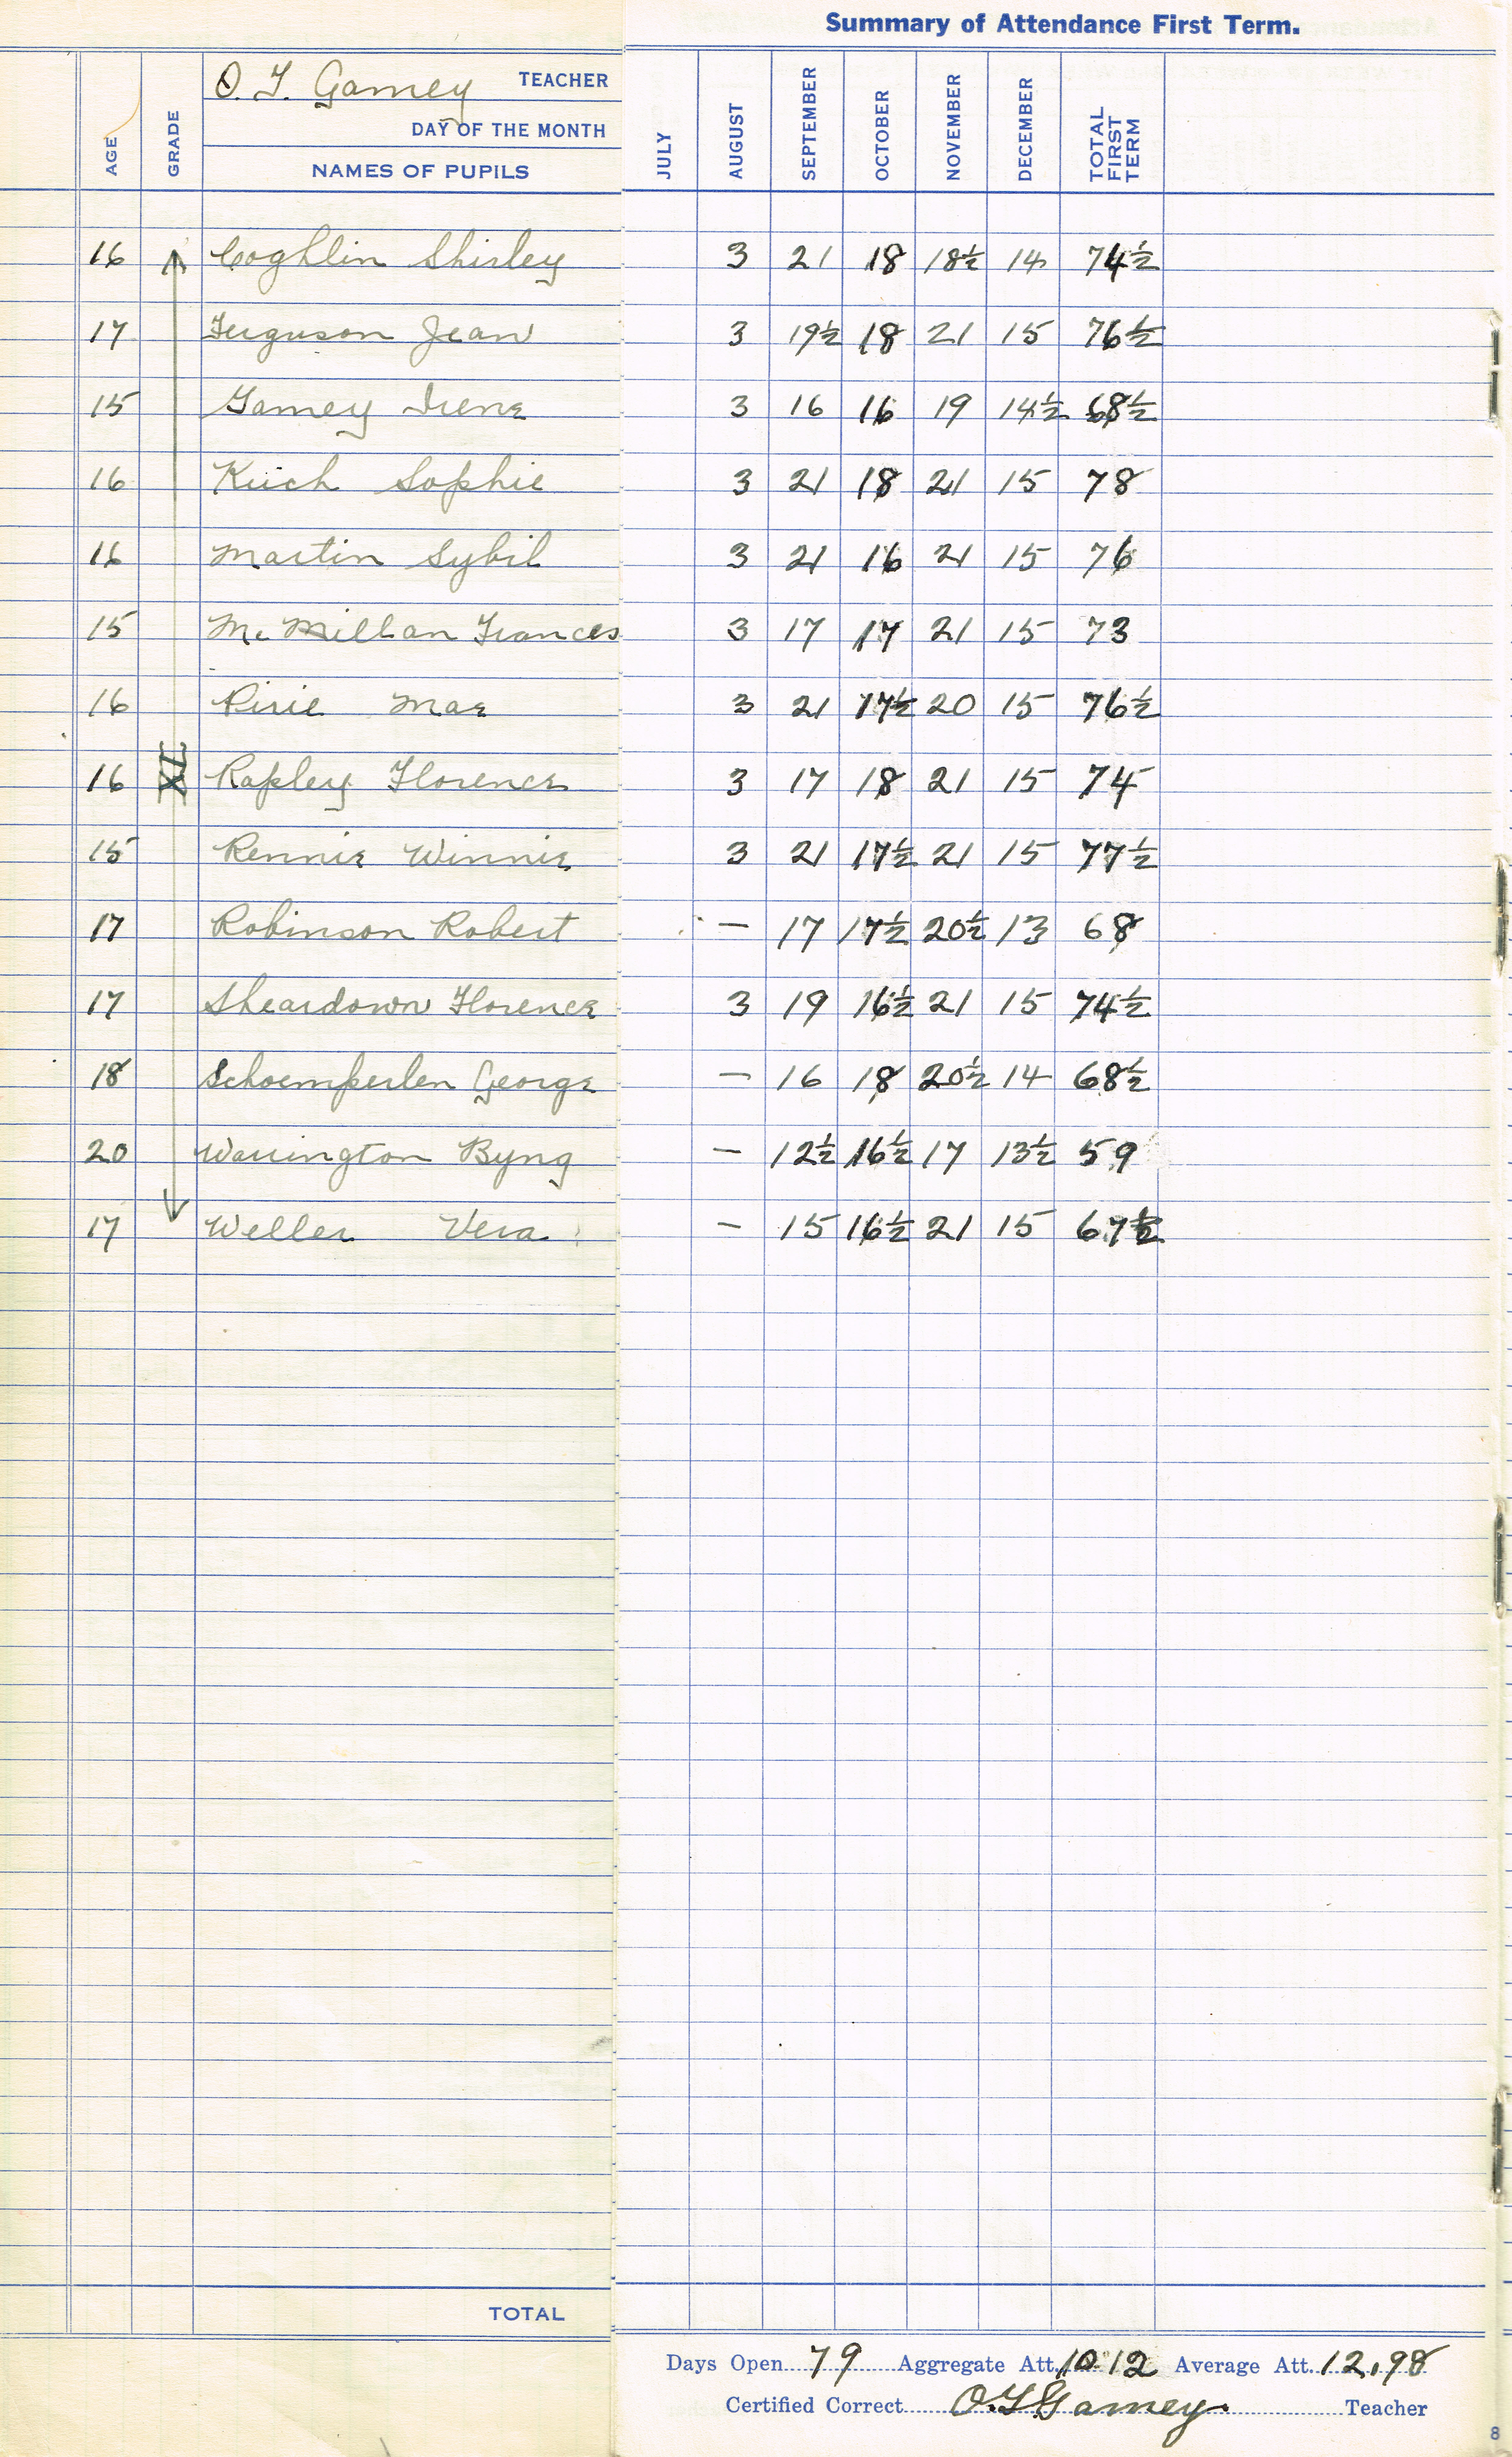 Summary of Attendance First Term.
AGE GRADE O. F. Gamey TEACHER
DAY OF THE MONTH
NAMES OF PUPILS JULY AUGUST SEPTEMBER OCTOBER NOVEMBER DECEMBER TOTAL FIRST TERM
16 Coghlin Shirley 3 21 18 18½ 14 74½
17 Ferguson Jean 3 19½ 18 21 15 76½
15 Gamey Irene 3 16 16 19 14½ 68½
16 Kuch Sophie 3 21 18 21 15 78
16 Martin Sybil 3 21 16 21 15 76
15 McMillan Frances 3 17 17 21 15 73
16 Pirie Mae 3 21 17½ 20 15 76½
16 XI Rapley Florence 3 17 18 21 15 74
15 Rennie Winnie 3 21 17½ 21 15 77½
17 Robinson Robert — 17 17½ 20½ 13 68
17 Sheardown Florence 3 19 16½ 21 15 74½
18 Schoemperlen George — 16 18 20½ 14 68½
20 Warrington Byng — 12½ 16½ 17 13½ 59
17 Weller Vera — 15 16½ 21 15 67½
TOTAL
Days Open 79 Aggregate Att. 1012 Average Att. 12.98
Certified Correct O.F. Gamey. Teacher
8